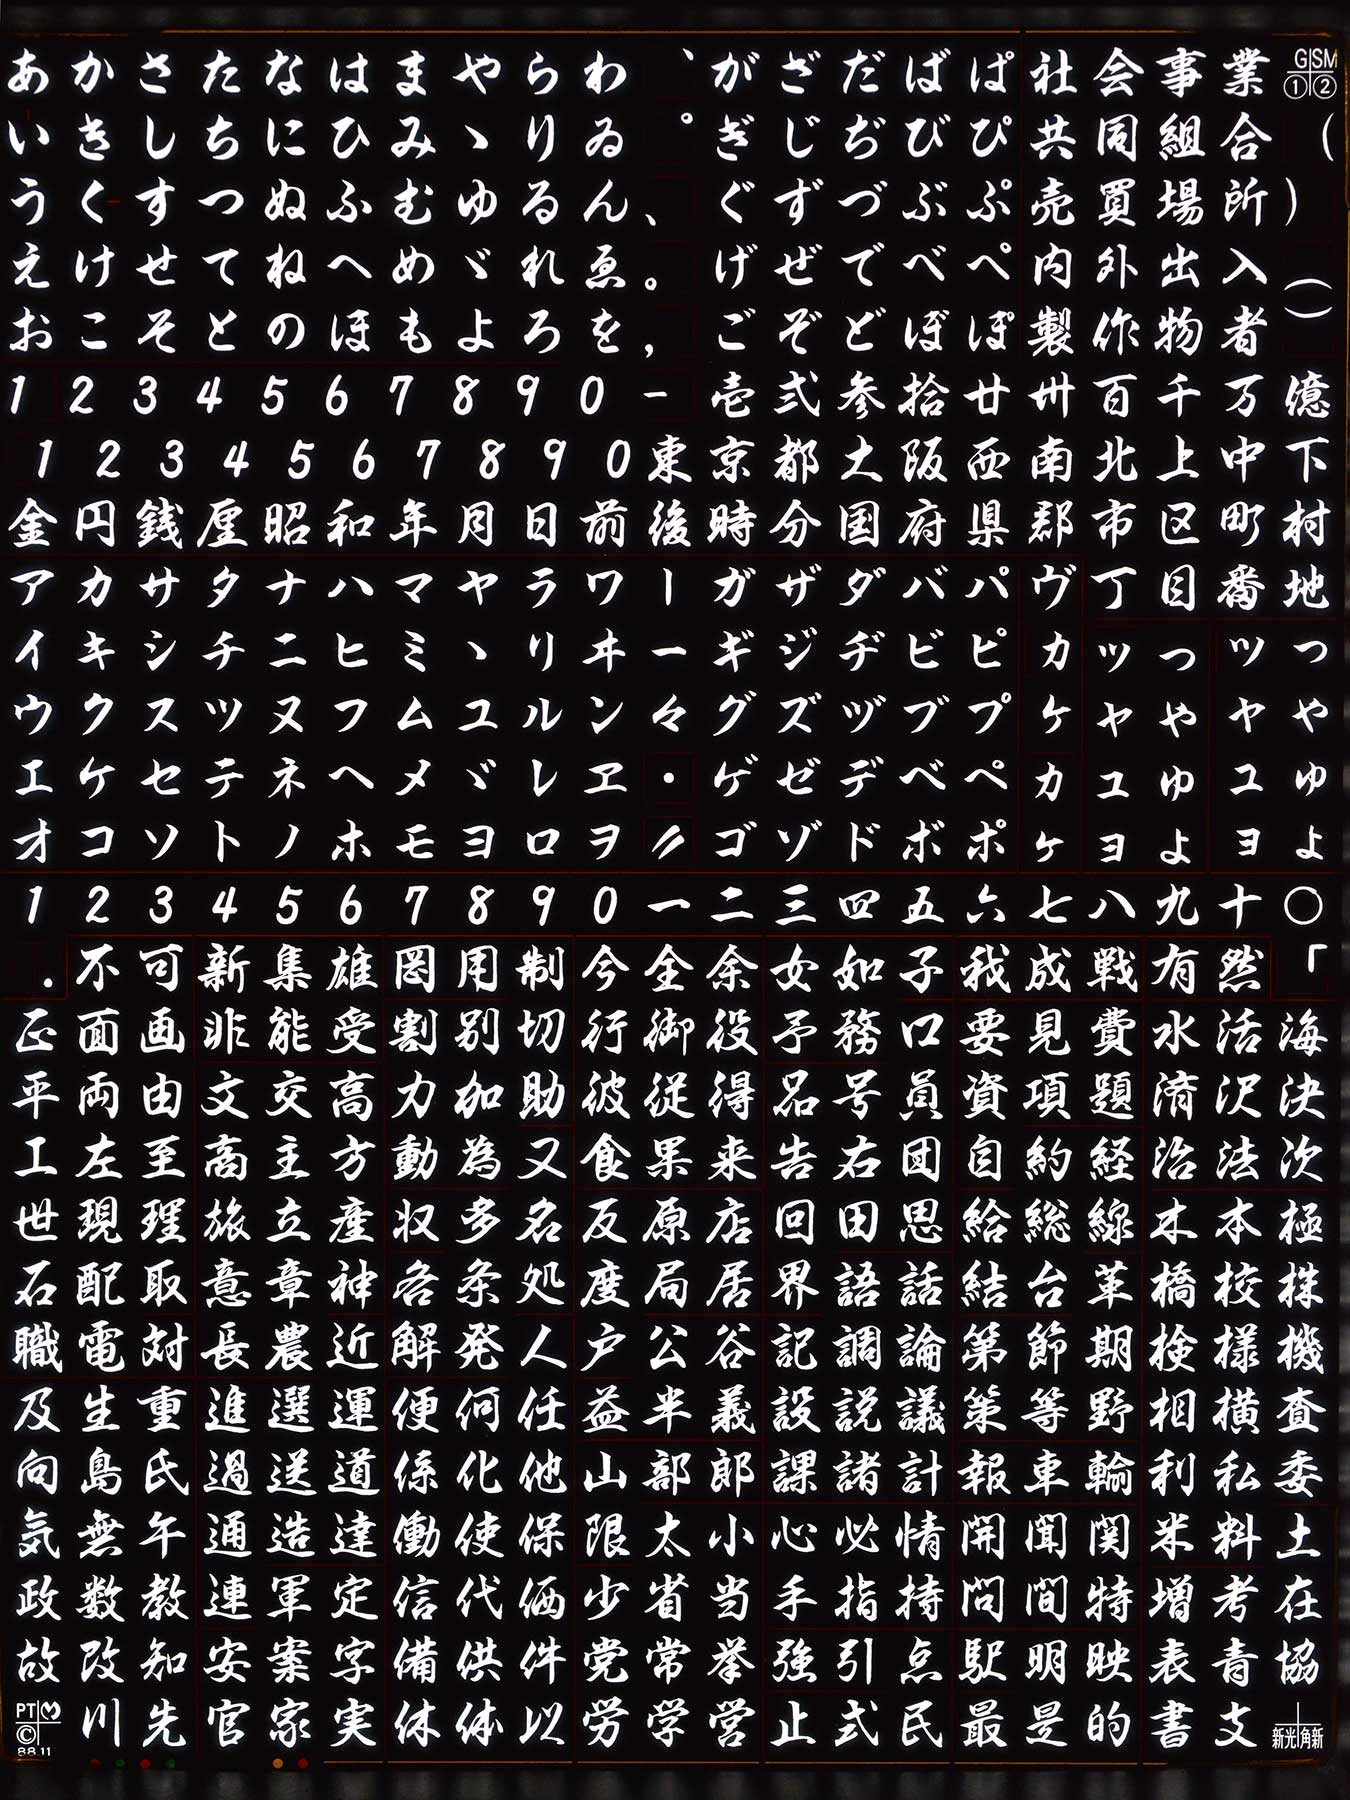 あかさたなはまやらわ、がざだばぱ社会事業GSM①②
いきしちにひみヽりゐ゜ぎじぢびぴ共同組合（
うくすつぬふむゆるん、ぐずづぶぷ売買場所）
えけせてねへめゞれゑ。げぜでべぺ内外出入︵
おこそとのほもよろを，ごぞどぼぽ製作物者︶
1234567890ー壱弐参拾廿卅百千万億
1234567890東京都大阪西南北上中下
金円銭厘昭和年月日前後時分国府県郡市区町村
アカサタナハマヤラワ｜ガザダバパヴ丁目番地
イキシチニヒミヽリヰーギジヂビピカッっッっ
ウクスツヌフムユルン々グズヅブプケャゃャゃ
エケセテネヘメヾレヱ・ゲゼデベペカュゅュゅ
オコソトノホモヨロヲ〃ゴゾドボポヶョょョょ
1234567890一二三四五六七八九十〇
．不可新集雄岡用制今全余女如子我成戦有然「
正面画非能受割別切行御役予務口要見費水活海
平両由文交高力加助彼従得品号員資項題済沢決
工左至高主方動為又食果来告右団自約経治法次
世現理旅立産収多名反原店回田思給総線木本極
石配取意章神各条処度局居界語話結台革橋校株
職電対長農近解発人戸公谷記調論第節期検様機
及生重進選運便何任益半義設説議策等野相横査
向島氏過送道係化他山部郎課諸計報車輪利私委
気無午通造達働使保限太小心必情開聞関米料土
政数教連軍定信代価少省当手指持問間特増考在
故改知安案字備供件党常挙強引点駅明映表青協
PT © 88.11 川先官家実休体以労学営止式民最是的書支 新光角新